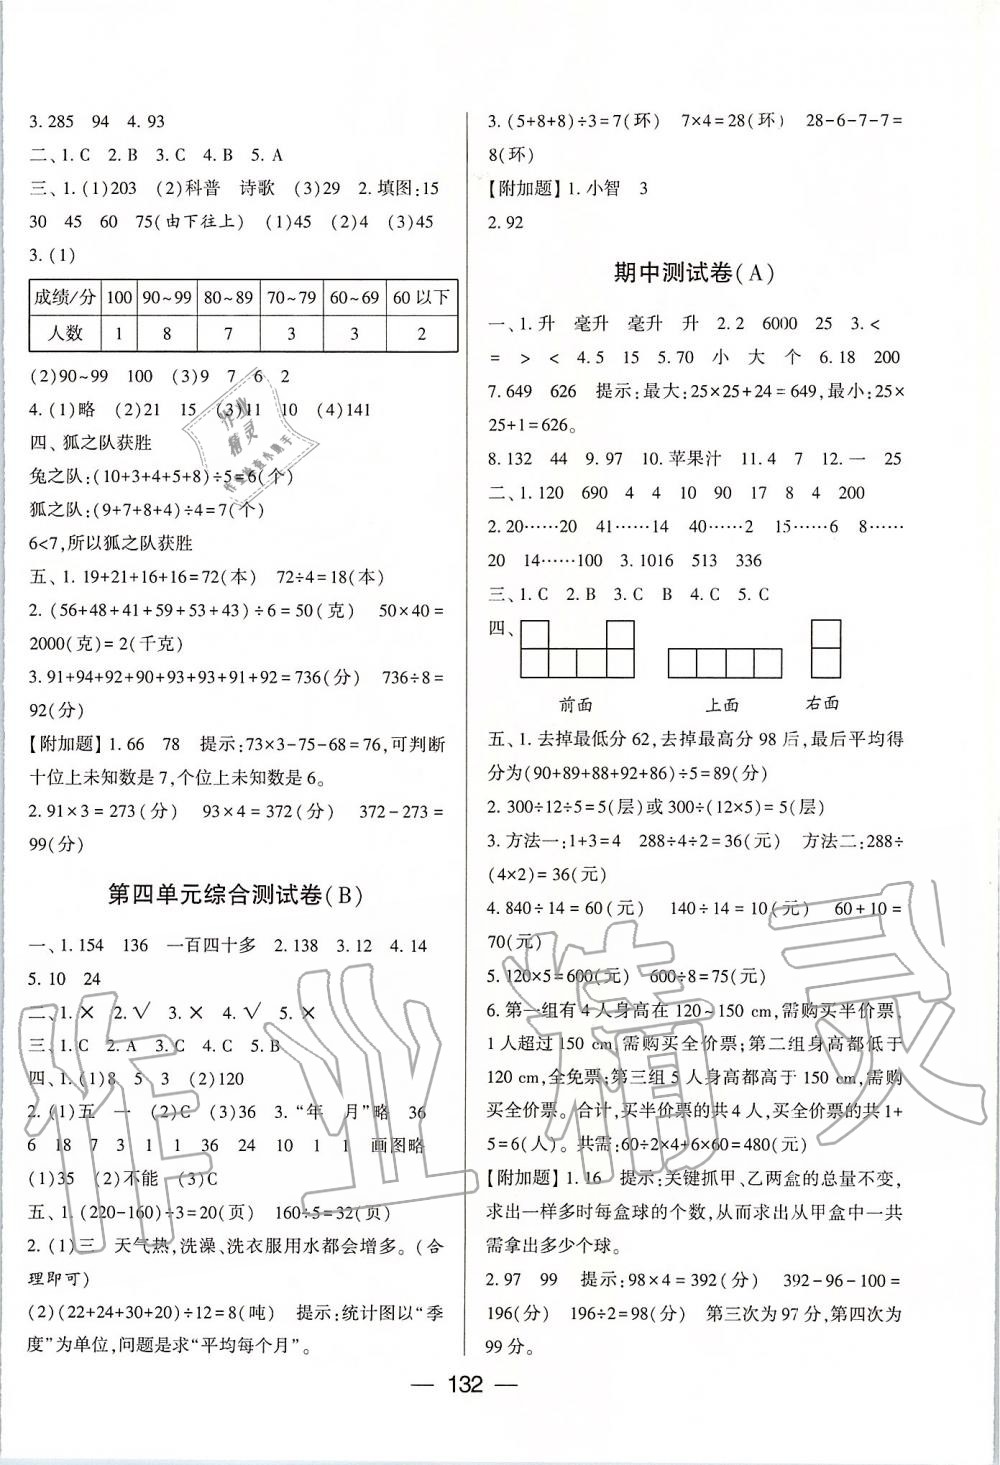 3. 285　94　4. 93
二、1. C　2. B　3. C　4. B　5. A
三、1. (1)203　(2)科普　诗歌　(3)29　2. 填图:15
30　45　60　75(由下往上)　(1)45　(2)4　(3)45
3. (1)
成绩/分　100　90~99　80~89　70~79　60~69　60以下
人数　1　8　7　3　3　2
(2)90~99　100　(3)9　7　6　2
4. (1)略　(2)21　15　(3)11　10　(4)141
四、狐之队获胜
兔之队:(10+3+4+5+8)÷5=6(个)
狐之队:(9+7+8+4)÷4=7(个)
6<7,所以狐之队获胜
五、1. 19+21+16+16=72(本)　72÷4=18(本)
2. (56+48+41+59+53+43)÷6=50(克)　50×40=
2000(克)=2(千克)
3. 91+94+92+90+93+93+91+92=736(分)　736÷8=
92(分)
【附加题】1. 66　78　提示:73×3-75-68=76,可判断
十位上未知数是7,个位上未知数是6。
2. 91×3=273(分)　93×4=372(分)　372-273=
99(分)
第四单元综合测试卷(B)
一、1. 154　136　一百四十多　2. 138　3. 12　4. 14
5. 10　24
二、1. ×　2. √　3. ×　4. √　5. ×
三、1. C　2. A　3. C　4. C　5. B
四、1. (1)8　5　3　(2)120
2. (1)五　一　(2)C　(3)36　3. “年　月”略　36
6　18　7　3　1　1　36　24　10　1　1　画图略
(1)35　(2)不能　(3)C
五、1. (220-160)÷3=20(页)　160÷5=32(页)
2. (1)三　天气热,洗澡、洗衣服用水都会增多。(合
理即可)
(2)(22+24+30+20)÷12=8(吨)　提示:统计图以“季
度”为单位,问题是求“平均每个月”。
3. (5+8+8)÷3=7(环)　7×4=28(环)　28-6-7-7=
8(环)
【附加题】1. 小智　3
2. 92
期中测试卷(A)
一、1. 升　毫升　毫升　升　2. 2　6000　25　3. <
=　>　<　4. 5　15　5. 70　小　大　个　6. 18　200
7. 649　626　提示:最大:25×25+24=649,最小:25×
25+1=626。
8. 132　44　9. 97　10. 苹果汁　11. 4　7　12. 一　25
二、1. 120　690　4　4　10　90　17　8　4　200
2. 20……20　41……14　40……2　15……6　8……
20　14……100　3. 1016　513　336
三、1. C　2. B　3. C　B　4. C　5. C
四、
前面　上面　右面
五、1. 去掉最低分62,去掉最高分98后,最后平均得
分为(90+89+88+92+86)÷5=89(分)
2. 300÷12÷5=5(层)或300÷(12×5)=5(层)
3. 方法一:1+3=4　288÷4÷2=36(元)　方法二:288÷
(4×2)=36(元)
4. 840÷14=60(元)　140÷14=10(元)　60+10=
70(元)
5. 120×5=600(元)　600÷8=75(元)
6. 第一组有4人身高在120~150 cm,需购买半价票,
1人超过150 cm,需购买全价票;第二组身高都低于
120 cm,全免票;第三组5人身高都高于150 cm,需购
买全价票。合计,买半价票的共4人,买全价票的共1+
5=6(人)。共需:60÷2×4+6×60=480(元)
【附加题】1. 16　提示:关键抓甲、乙两盒的总量不变,
求出一样多时每盒球的个数,从而求出从甲盒中一共
需拿出多少个球。
2. 97　99　提示:98×4=392(分)　392-96-100=
196(分)　196÷2=98(分)　第三次为97分,第四次为
99分。
— 132 —
作业精灵
作业精灵
作业检查小助手